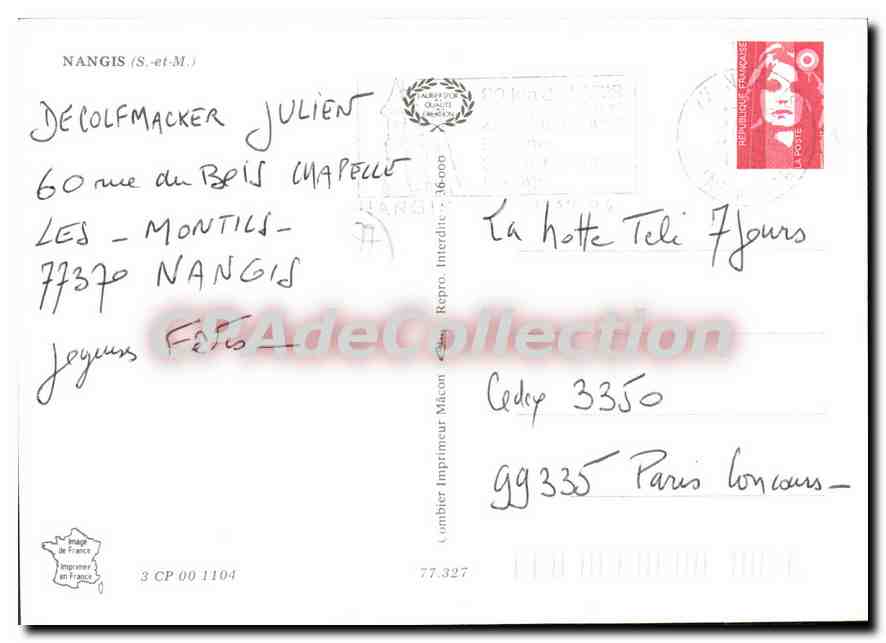 NANGIS (S.-et-M.)
DECOLFMACKER JULIEN
60 rue du BOIS CHAPELLE
LES - MONTILS -
77370 NANGIS
Joyeuses Fêtes -
LAURIER D'OR
DE LA
QUALITÉ
CRÉATION
NANGIS
77
RÉPUBLIQUE FRANÇAISE
LA POSTE
Combier Imprimeur Mâcon Repro. Interdite 36-000
La hotte Télé 7 Jours
Cedex 3350
99335 Paris Concours -
CPAdeCollection
Image
de France
Imprimée
en France
3 CP 00 1104
77.327